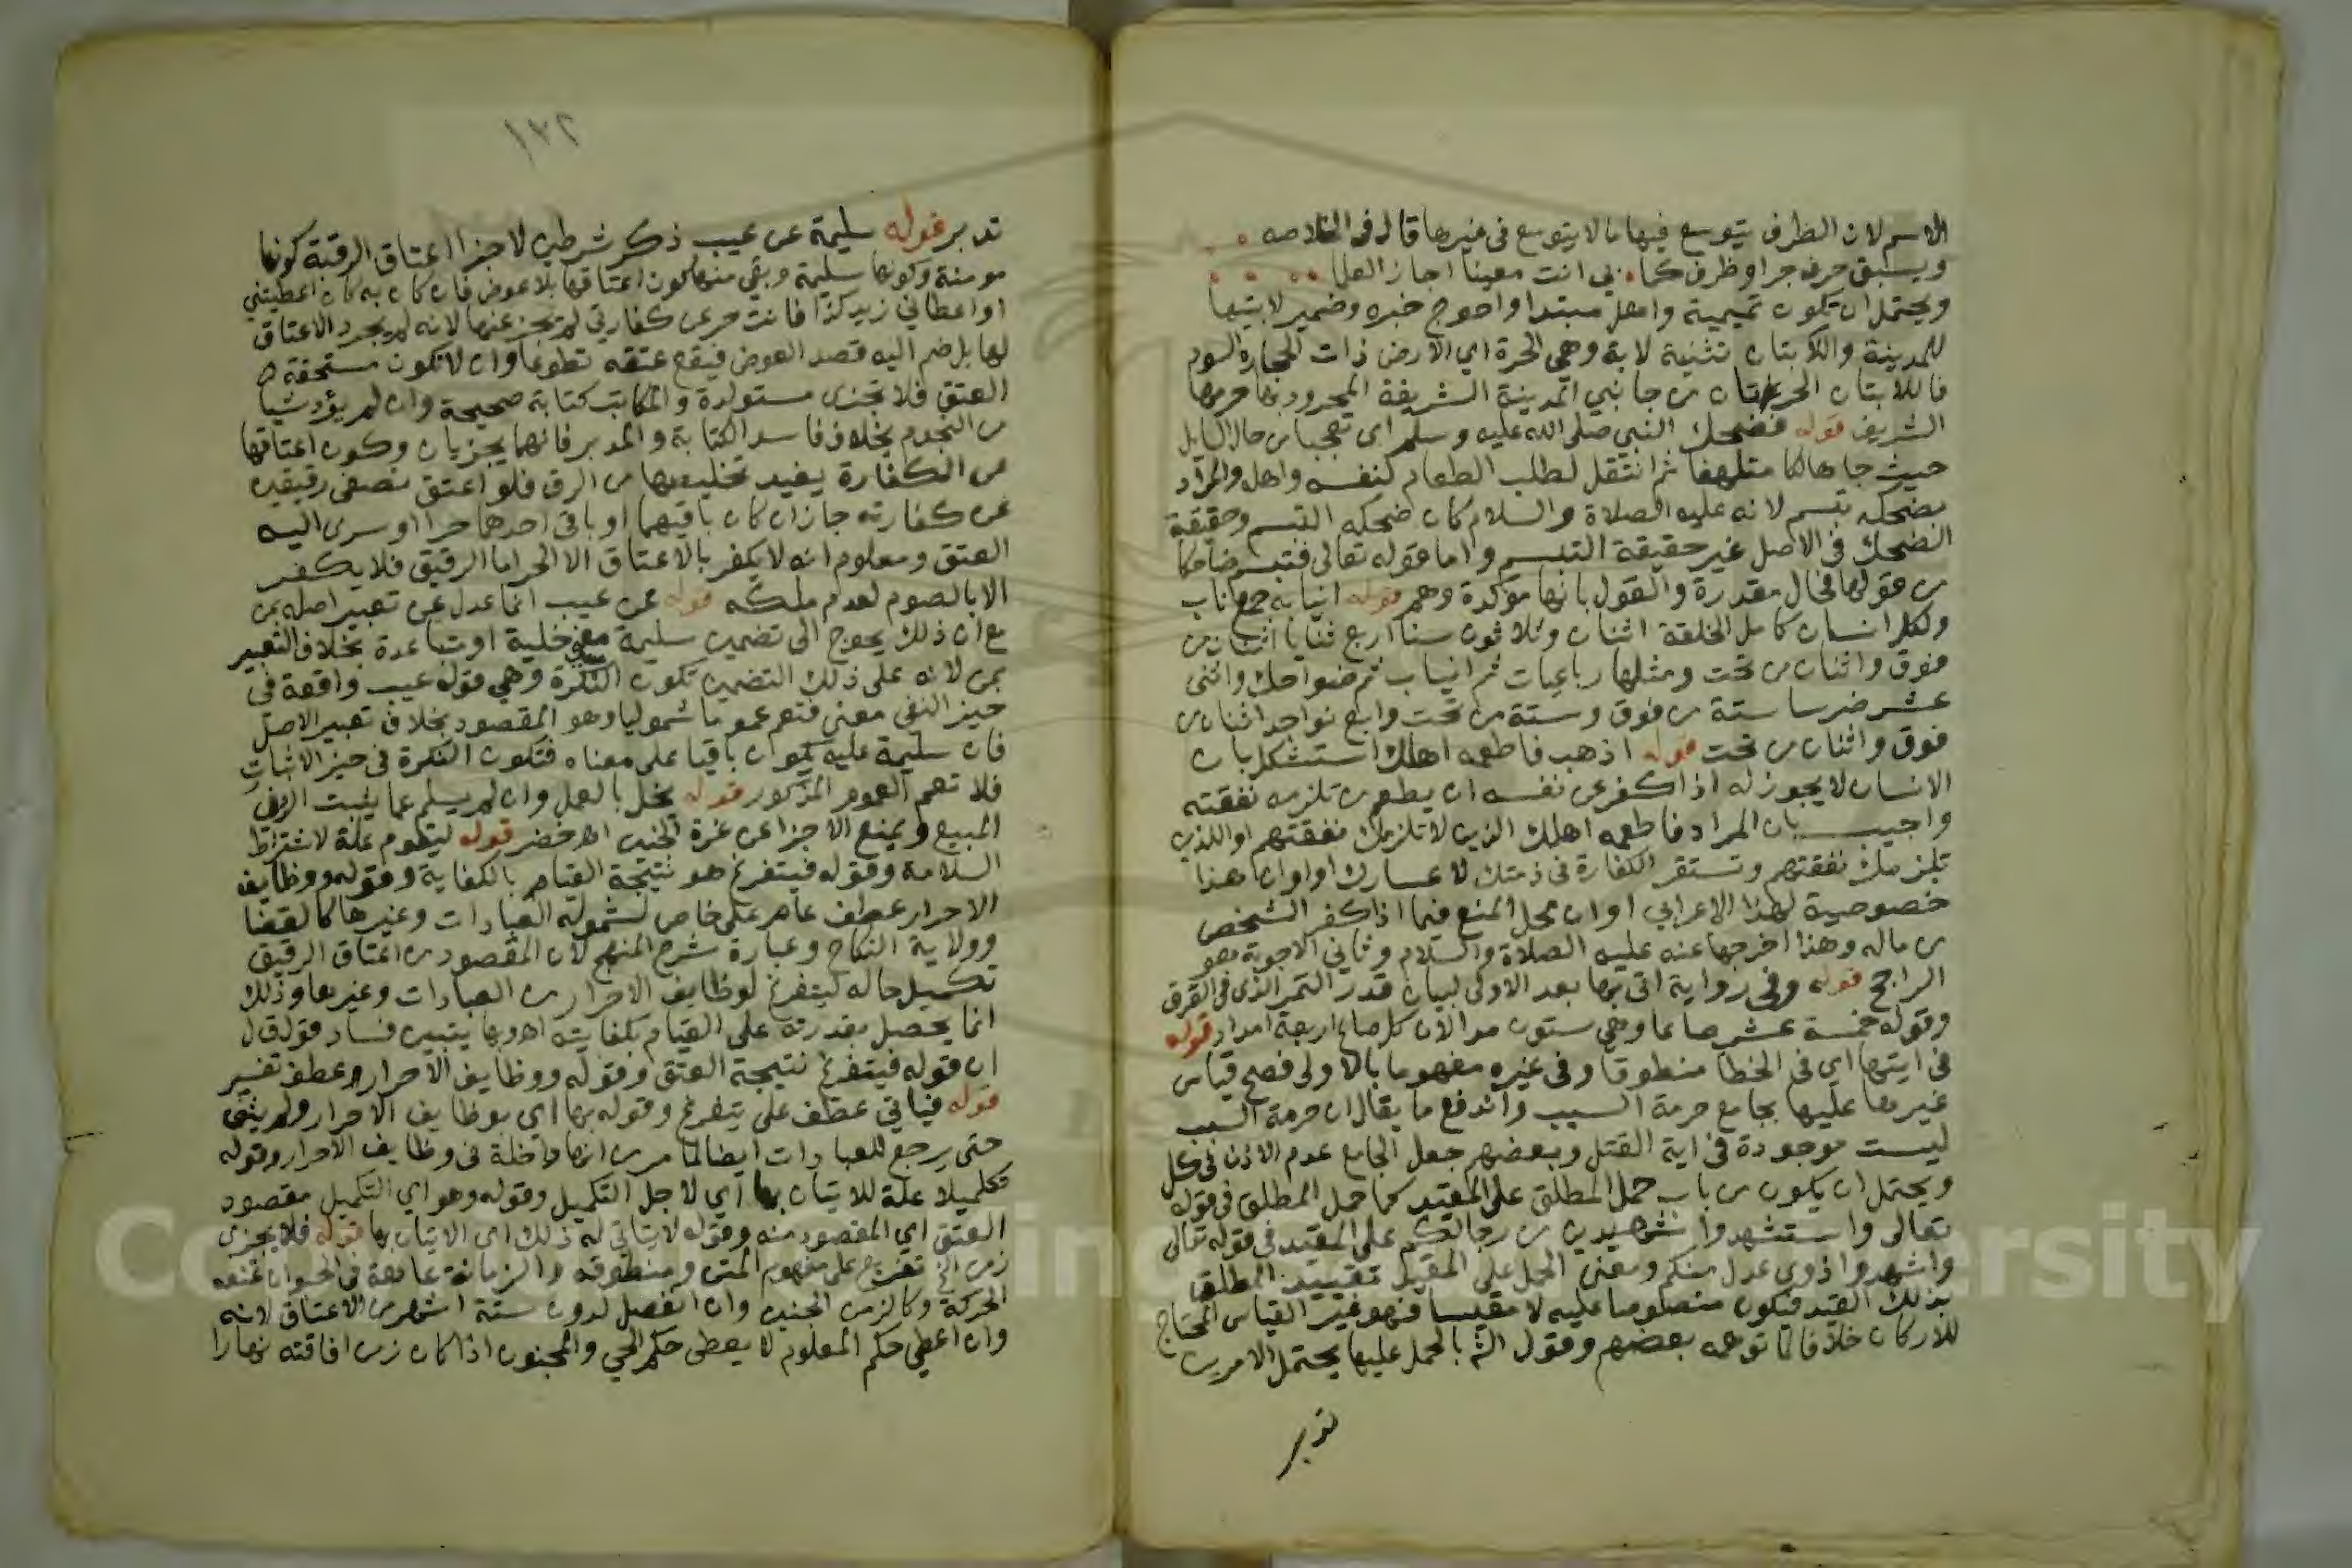 الاسم لان الظرف يتوسع فيها ما لا يتوسع في غيرها قال في الخلاصه
وسبق حرف جر او ظرف كما بي انت معنيا اجاز العلما
ويحتمل ان تكون تميمية واهل مبتدا واحوج خبره وضمير لابتيها
للمدينة واللابتان تثنية لابة وهي الحرة اي الارض ذات الحجارة السود
فاللابتان الحرتان من جانبي المدينة الشريفة المحدود بها حرمها
الشريف قوله فضحك النبي صلى الله عليه وسلم اي تعجبا من حال السايل
حيث جا هالكا متلهفا ثم انتقل لطلب الطعام لنفسه واهله والمراد
بضحكه تبسم لانه عليه الصلاة والسلام كان ضحكه التبسم وحقيقة
الضحك في الاصل غير حقيقة التبسم واما قوله تعالى فتبسم ضاحكا
من قولها فحال مقدرة والقول بانها مؤكدة وهم قوله انيابه جمع ناب
ولكل انسان كامل الخلقة اثنان وثلاثون سنا اربع ثنايا اثنان من
فوق واثنان من تحت ومثلها رباعيات ثم انياب ثم ضواحك واثنى
عشر ضرسا ستة من فوق وستة من تحت واربع نواجد اثنان من
فوق واثنان من تحت قوله اذهب فاطعمه اهلك استشكل بان
الانسان لا يجوز له اذا كفر عن نفسه ان يطعم من تلزمه نفقته
واجيب بان المراد فاطعمه اهلك الذين لا تلزمك نفقتهم او اللذين
تلزمك نفقتهم وتستقر الكفارة في ذمتك لاعسارك او ان هذا
خصوصية لهذا الاعرابي او ان محل المنع فيما اذا كفر الشخص
من ماله وهذا اخرجها عنه عليه الصلاة والسلام وثاني الاجوبة هو
الراجح قوله وفي رواية اتى بها بعد الاولى لبيان قدر التمر الذي في الفرق
وقوله خمسة عشر صاعا وهي ستون مد الان كل صاع اربعة امداد قوله
في ايتها اي في الخطا منطوقا وفي غيره مفهوما بالاولى فصح قياس
غيرها عليها بجامع حرمة السبب واندفع ما يقال ان حرمة السبب
ليست موجودة في اية القتل وبعضهم جعل الجامع عدم الاذن في كل
ويحتمل ان يكون من باب حمل المطلق على المقيد كما حمل المطلق في قوله
تعالى واستشهدوا شهيدين من رجالكم على المقيد في قوله تعالى
واشهدوا ذوي عدل منكم ومعنى الحمل على المقيد تقييد المطلق
بذلك القيد فيكون منصوصا عليه لا مقيسا فهو غير القياس المحتاج
للاركان خلافا لما توهمه بعضهم وقول الش بالحمل عليها يحتمل الامرين
تدبر
١٣٢
تدبر قوله سليمة عن عيب ذكر شرطين لاجزا اعتاق الرقبة كونها
مومنة وكونها سليمة وبقي منها كون اعتاقها بلا عوض فان كان به كان اعطيتني
او اعطاني زيد كذا فانت حر عن كفارتي لم يجز عنها لانه لم يجرد الاعتاق
لها بل ضم اليه قصد العوض فيقع عتقه تطوعا وان لا تكون مستحقة
العتق فلا تجزى مستولدة والمكاتب كتابة صحيحة وان لم يؤد شيا
من النجوم بخلاف فاسد الكتابة والمدبر فانهما يجزيان وكون اعتاقها
من الكفارة يفيد تخليصها من الرق فلو اعتق نصفي رقيقين
عن كفارته جاز ان كان باقيهما او باقي احدهما حرا او سرى اليه
العتق ومعلوم انه لا يكفر بالاعتاق الا الحر اما الرقيق فلا يكفر
الا بالصوم لعدم ملكه قوله عن عيب انما عدل عن تعبير اصله بمن
مع ان ذلك يحوج الى تضمين سليمة معنى خلية او متباعدة بخلاف التعبير
بمن لانه على ذلك التضمين تكون النكرة وهي قوله عيب واقعة في
حيز النفي معنى فتعم عموما شموليا وهو المقصود بخلاف تعبير الاصل
فان سليمة عليه يكون باقيا على معناه فتكون النكرة في حيز الاثبات
فلا تعم العموم المذكور قوله يخل بالعمل وان لم يسلم عما يثبت الرد في
المبيع ويمنع الاجزا عن غرة الجنين اه خضر قوله ليقوم علة لاشتراط
السلامة وقوله فيتفرغ هو نتيجة القيام بالكفاية وقوله ووظايف
الاحرار عطف عام على خاص لشموله العبادات وغيرها كالقضا
وولاية النكاح وعبارة شرح المنهج لان المقصود من اعتاق الرقيق
تكميل حاله ليتفرغ لوظايف الاحرار من العبادات وغيرها وذلك
انما يحصل بقدرته على القيام بكفايته اه وبها يتبين فساد قول ق ل
ان قوله فيتفرغ نتيجة العتق وقوله ووظايف الاحرار عطف تفسير
قوله فياتي عطف على يتفرغ وقوله بها اي بوظايف الاحرار ولم يثن
حتى يرجع للعبادات ايضا لما مر من انها داخلة في وظايف الاحرار وقوله
تكميلا علة للاتيان بها اي لاجل التكميل وقوله وهو اي التكميل مقصود
العتق اي المقصود منه وقوله لا يتاتى له ذلك اي الاتيان بها قوله فلا يجزى
زمن الخ تفريع على مفهوم المتن ومنطوقه والزمانة عاهة في الحيوان تمنعه
الحركة وكالزمن الجنين وان انفصل لدون ستة اشهر من الاعتاق لانه
وان اعطي حكم المعلوم لا يعطى حكم الحي والمجنون اذا كان زمن افاقته نهارا